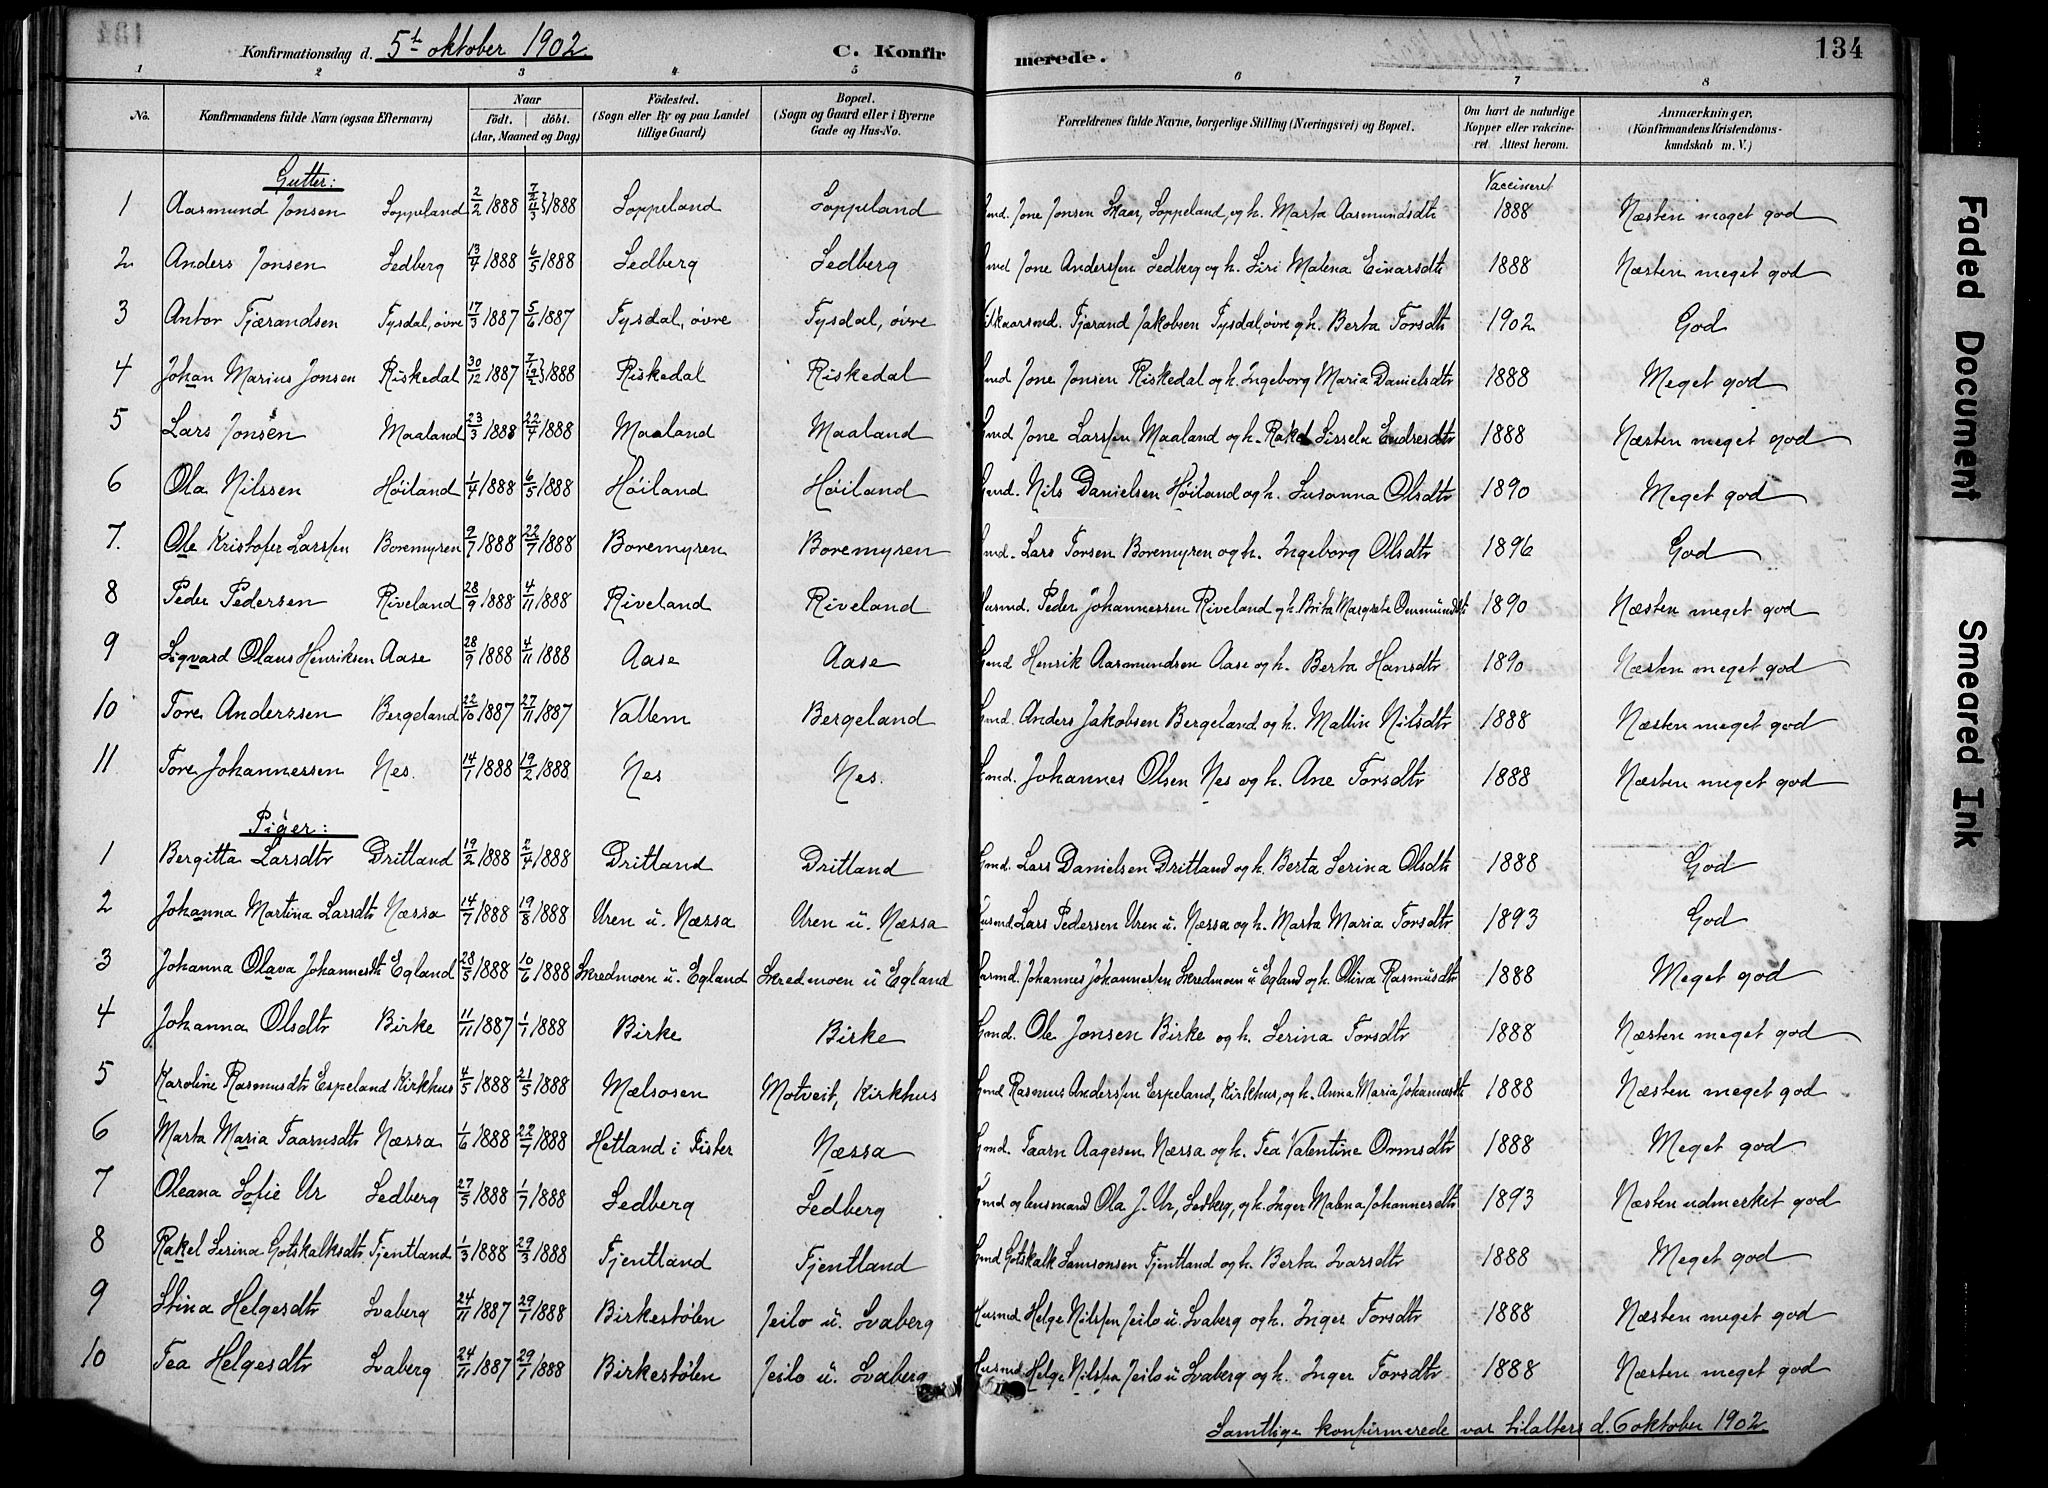 134
Konfirmationsdag d. 5t oktober 1902
C. Konfirmerede.
1 2 3 4 5 6 7 8
No.
Konfirmandens fulde Navn (ogsaa Efternavn)
Naar
födt. döbt.
(Aar, Maaned og Dag)
Födested.
(Sogn eller By og paa Landet
tillige Gaard)
Bopæl.
(Sogn og Gaard eller i Byerne
Gade og Hus-No.
Forældrenes fulde Navne, borgerlige Stilling (Næringsvei) og Bopæl.
Om havt de naturlige
Kopper eller vakcine-
ret. Attest herom.
Anmærkninger.
(Konfirmandens Kristendoms-
kundskab m. V.)
Gutter:
Vaccineret
1 Aasmund Jonsen Soppeland 2/2 1888 7/2 11/3 } 1888 Soppeland Soppeland Gmd. Jone Jonsen Skaar, Soppeland, og h. Marta Aasmundsdtr 1888 Næsten meget god
2 Anders Jonsen Sedberg 13/4 1888 6/5 1888 Sedberg Sedberg Gmd Jone Anderssen Sedberg og h. Siri Malena Einarsdtr 1888 Næsten meget god
3 Antor Tjærandsen Tysdal, øvre 17/3 1887 5/6 1887 Tysdal, øvre Tysdal, øvre Tjærand Jakobsen Tysdal, øvre og h. Berta Torsdtr 1902 God
4 Johan Marius Jonsen Riskedal 30/12 1887 7/1 19/2 } 1888 Riskedal Riskedal Gmd Jone Jonsen Riskedal og h. Ingeborg Maria Danielsdtr 1888 Meget god
5 Lars Jonsen Maaland 23/3 1888 22/4 1888 Maaland Maaland Gmd Jone Larssen Maaland og h. Rakel Sissela Endresdtr 1888 Næsten meget god
6 Ola Nilssen Høiland 1/4 1888 6/5 1888 Høiland Høiland Gmd. Nils Danielsen Høiland og h. Susanna Olsdtr 1890 Meget god
7. Ole Kristofer Larssen Boremyren 9/7 1888 22/7 1888 Boremyren Boremyren Lars Torsen Boremyren og h. Ingeborg Olsdtr 1896 God
8 Peder Pedersen Riveland 28/9 1888 4/11 1888 Riveland Riveland Husmd. Peder Johannessen Riveland og h. Brita Margreta Ommundsdtr 1890 Næsten meget god
9 Sigvard Olaus Henriksen Aase 28/9 1888 4/11 1888 Aase Aase Gmd Henrik Aasmundsen Aase og h. Berta Hansdtr 1890 Næsten meget god
10 Tore Anderssen Bergeland 22/10 1887 27/11 1887 Vallem Bergeland Gmd. Anders Jakobsen Bergeland og h. Mallin Nilsdtr 1888 Næsten meget god
11 Tore Johannessen Nes. 14/1 1888 19/2 1888 Nes Nes. Gmd. Johannes Olsen Nes og h. Ane Torsdtr 1888 Næsten meget god
Piger:
1 Bergitta Larsdtr Dritland 19/2 1888 2/4 1888 Dritland Dritland Gmd. Lars Danielsen Dritland og h. Berta Serina Olsdtr 1888 God
2 Johanna Martina Larsdtr Næssa 14/7 1888 19/8 1888 Uren u. Næssa Uren u. Næssa Husmd. Lars Pedersen Uren u. Næssa og h. Marta Maria Torsdtr 1893 God
3 Johanna Olava Johannesdtr Egland 28/5 1888 10/6 1888 Skredmoen u. Egland Skredmoen u Egland Husmd. Johannes Johannessen Skredmoen u Egland og h. Olina Rasmusdtr 1888 Meget god
4 Johanna Olsdtr Birke 11/11 1887 1/1 1888 Birke Birke Gmd. Ole Jonsen Birke og h. Serina Torsdtr 1888 Næsten meget god
5 Karoline Rasmusdtr Espeland Kirkhus 4/5 1888 21/5 1888 Mælsosen Motveit, Kirkhus Gmd Rasmus Anderssen Espeland, Kirkhus, og h. Anna Maria Johannesdtr 1888 Næsten meget god
6 Marta Maria Taarnsdtr Næssa 1/6 1888 22/7 1888 Hetland i Fister Næssa Gmd. Taarn Aagesen Næssa og h. Tea Valentine Ormsdtr 1888 Meget god
7 Oleana Sofie Ur Sedberg 27/5 1888 1/7 1888 Sedberg Sedberg Gmd og lensmand Ola J. Ur, Sedberg, og h. Inger Malena Johannesdtr 1893 Næsten udmerket god
8 Rakel Serina Gotskalksdtr Tjentland 1/3 1888 29/3 1888 Tjentland Tjentland Gmd Gotskalk Samsonsen Tjentland og h. Berta Ivarsdtr 1888 Meget god
9 Stina Helgesdtr Svaberg 24/11 1887 29/1 1888 Birkestølen Jeilo u. Svaberg Husmd Helge Nilssen Jeilo u. Svaberg og h. Inger Torsdtr 1888 Næsten meget god
10 Tea Helgesdtr Svaberg 24/11 1887 29/1 1888 Birkestølen Jeilo u. Svaberg Husmd. Helge Nilssen Jeilo u Svaberg og h. Inger Torsdtr 1888 Næsten meget god
Samtlige konfirmerede var tilalters d. 6 oktober 1902.
Faded Document
Smeared Ink